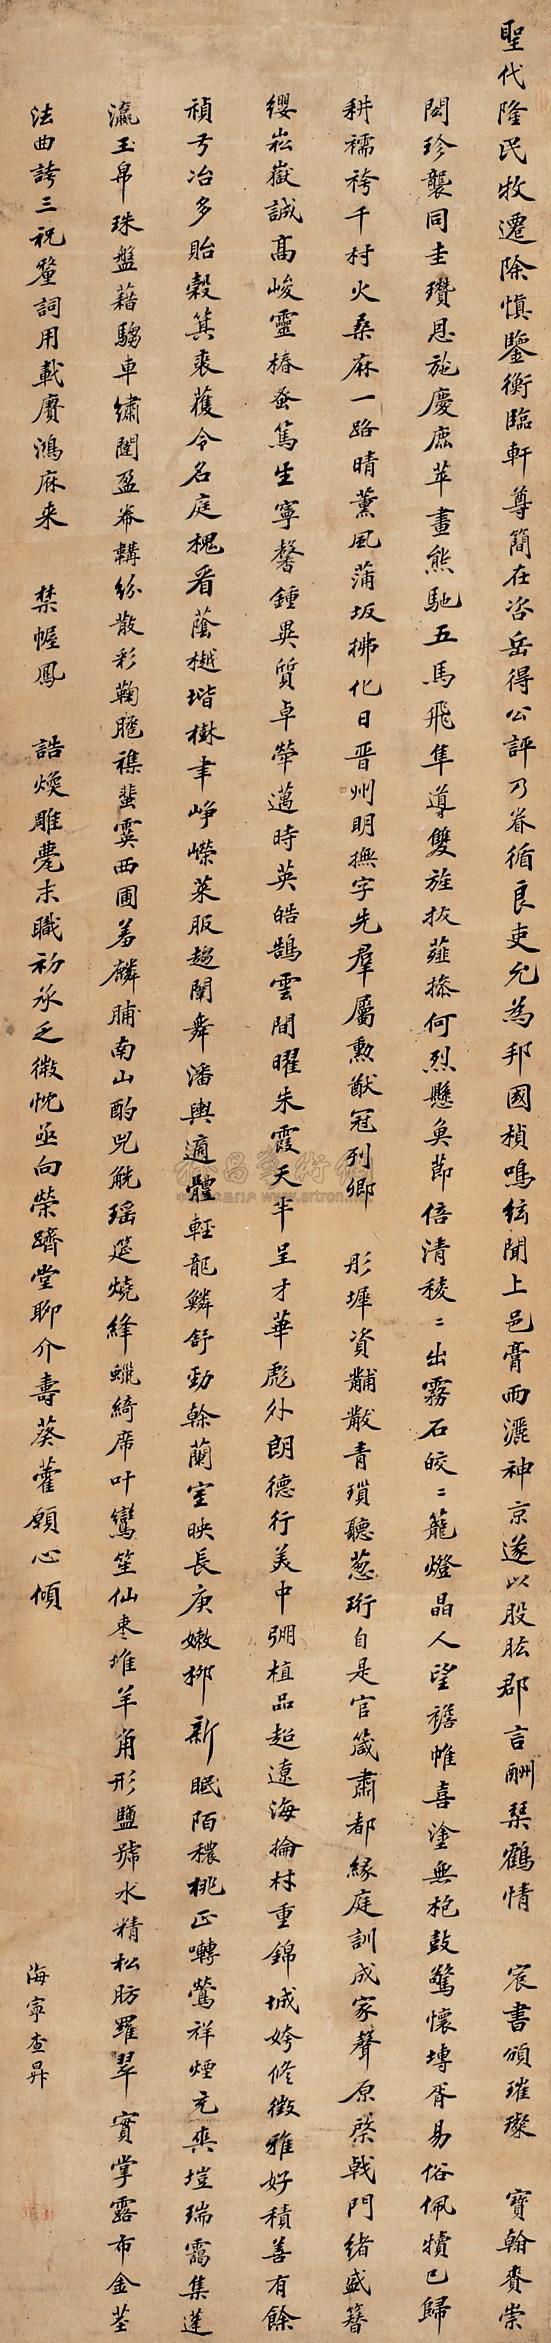 聖代隆民牧遷除慎鑒衡臨軒尊簡在咨岳得公評乃眷循良吏允為邦國楨鳴絃聞上邑膏雨灑神京遂以股肱郡言酬琴鶴情 宸書頒璀璨 寶翰賚崇
閎珍襲同圭瓚恩施慶鹿苹畫熊馳五馬飛隼導雙旌拔薤操何烈懸魚節倍清稜〻出霧石皎〻籠燈晶人望襜帷喜塗無枹鼓驚懷塼胥易俗佩犢已歸
耕襦袴千村火桑麻一路晴薰風蒲坂拂化日晋州明撫字先羣屬勲猷冠列卿 彤墀資黼黻青瑣聽葱珩自是官箴肅都緣庭訓成家聲原棨戟門緒盛簪
纓崧嶽誠高峻靈椿蚤篤生寧馨鍾異質卓犖邁時英皓鵠雲間曜朱霞天半呈才華彪外朗德行美中弸植品超遼海掄材重錦城姱修徵雅好積善有餘
禎弓冶多貽穀箕裘獲令名庭槐看蔭樾堦樹聿崢嶸萊服趨闌舞潘輿適體輕龍鱗舒勁榦蘭室映長庚嫩柳新眠陌穠桃正囀鶯祥煙充爽塏瑞靄集蓬
瀛玉帛珠盤藉騶車繡闥盈帣韝紛散彩鞠䠆襍蜚霙西圃羞麟脯南山酌兕觥瑤筵燒絳蠟綺席叶鸞笙仙棗堆羊角形鹽號水精松肪羅翠實掌露布金莖
法曲誇三祝蕫詞用載賡鴻麻来 禁幄鳳 誥煥雕甍末職初承乏微忱亟向榮躋堂聊介壽葵藿願心傾
海寧查昇